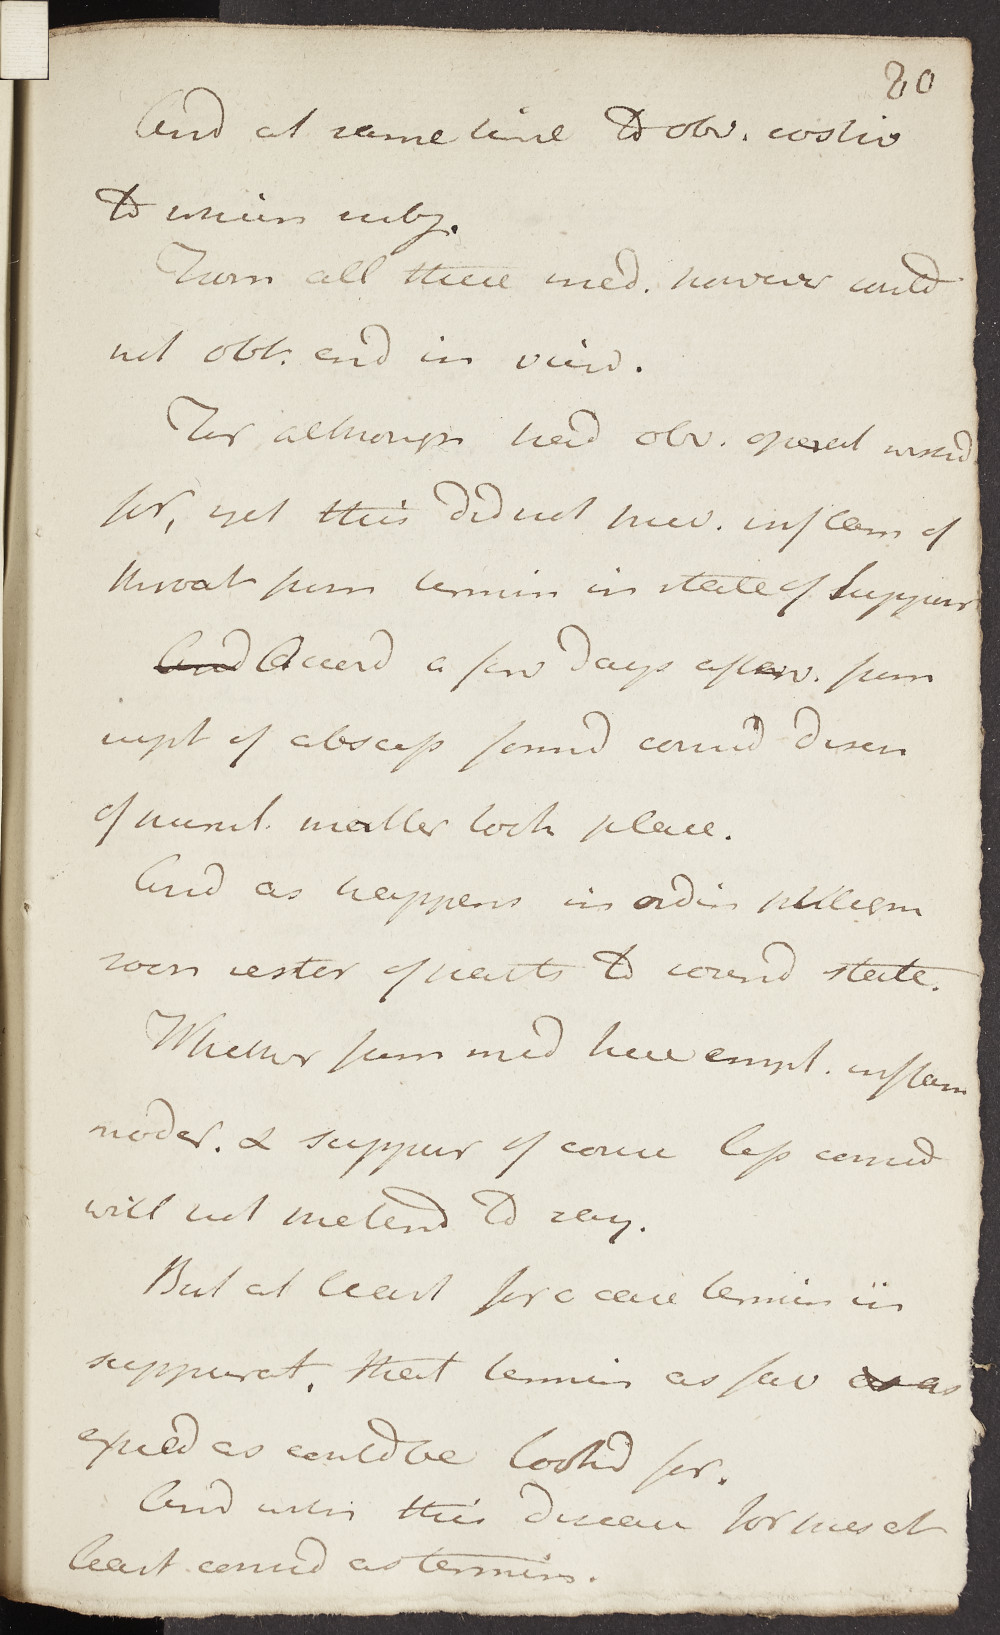 20
And at same time to obv. costiv
to which subj.
From all these med. however could
not obt. end in view.
For although had obv. operat wishd
for, yet this did not prev. inflam of
throat from termin in state of Suppur
And Accord a few days afterw. from
rupt of abscess found consid disch
of purul. matter took place.
And as happens in ordin phlegm
soon restor of parts to sound state.
Whether from med here empl. inflam
moder. & suppur of course less consid
will not pretend to say.
But at least for a case termin in
suppurat, that termin as fav as as
exped as could be look'd for.
And with this disease for pres at
least consid as termin.